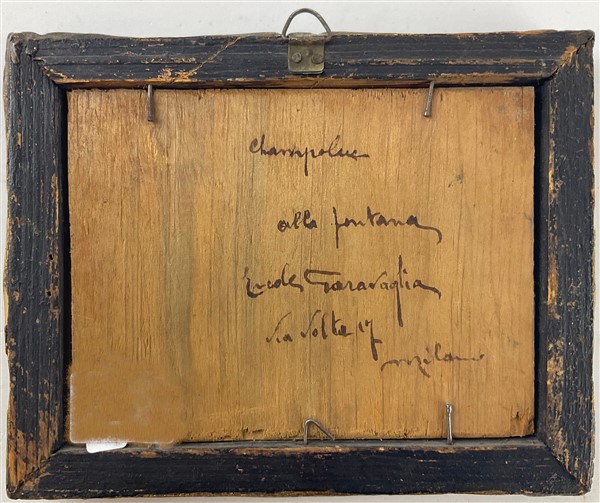 Champoluc
alla fontana
Garavaglia
Via Volta 17
Milano